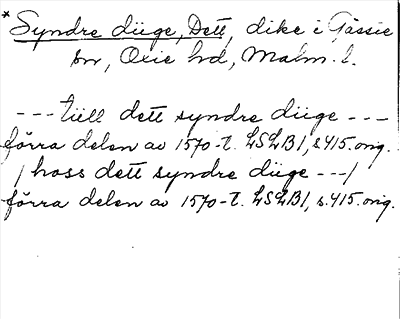 * Syndre diige, Dett, dike i Gässie
sn, Oxie hd, Malm. l.
--- tiill dett syndre diige ---
förra delen av 1570-t. LSLB1, s.415. orig.
/ hoss dett syndre diige ---/
förra delen av 1570-t. LSLB1, s.415. orig.